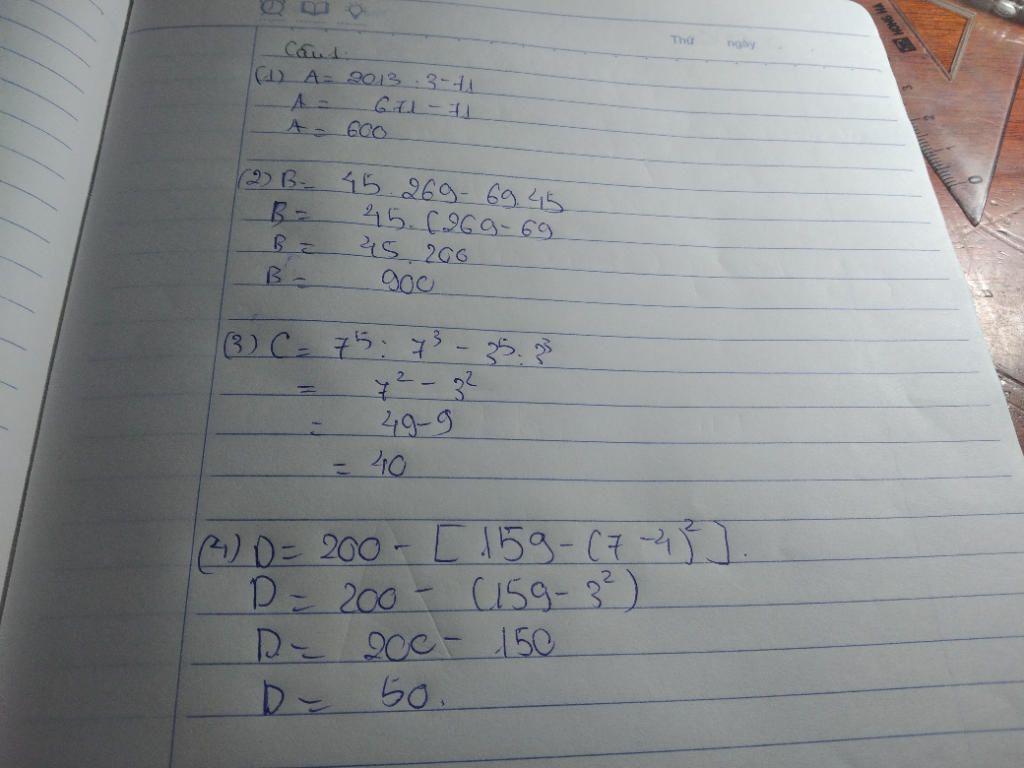 Thứ ngày
Câu 1.
(1) A = 2013 : 3 - 71
A = 671 - 71
A = 600
(2) B = 45 . 269 - 69 . 45
B = 45 . (269 - 69
B = 45 . 200
B = 900
(3) C = 7⁵ : 7³ - 3⁵ : 3³
= 7² - 3²
= 49 - 9
= 40
(4) D = 200 - [ 159 - (7 - 4)² ] .
D = 200 - (159 - 3²)
D = 200 - 150
D = 50 .